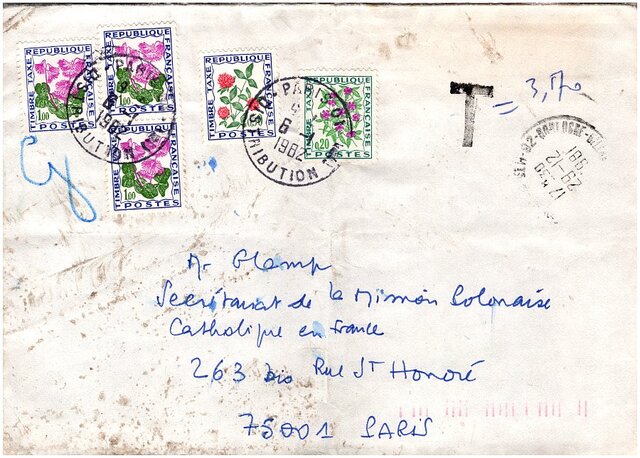 REPUBLIQUE FRANÇAISE
TIMBRE TAXE
1,00
POSTES
REPUBLIQUE FRANÇAISE
TIMBRE TAXE
1,00
POSTES
REPUBLIQUE FRANÇAISE
TIMBRE TAXE
1,00
POSTES
REPUBLIQUE FRANÇAISE
TIMBRE TAXE
POSTES
REPUBLIQUE FRANÇAISE
TIMBRE TAXE
0,20
POSTES
PARIS
1982
DISTRIBUTION
PARIS
6-1
1982
DISTRIBUTION
T = 3,70
Mr Glemp
Secrétariat de la Mission Polonaise
Catholique en France
263 bis Rue St Honoré
75001 PARIS